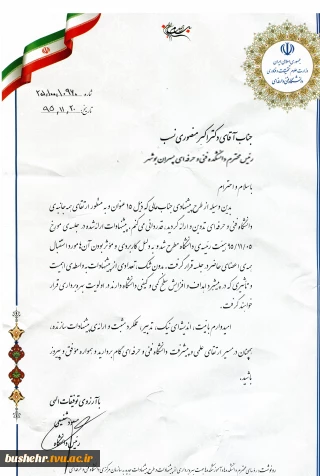 جمهوری اسلامی ایران
وزارت علوم، تحقیقات و فناوری
دانشگاه فنی و حرفه‌ای
شماره
تاریخ: ۹۵,۱۱,۲۰
جناب آقای دکتر اکبر منصوری نسب
رئیس محترم دانشکده فنی و حرفه ای پسران بوشهر
با سلام و احترام
بدین وسیله از طرح پیشنهادی جنابعالی که ذیل ۱۵ عنوان و به منظور ارتقای همه جانبه ی
دانشگاه فنی و حرفه ای تدوین و ارائه گردید، قدردانی می کنم. پیشنهادات ارائه شده در جلسه ی مورخ
۹۵/۱۱/۰۵ هیئت رئیسه ی دانشگاه مطرح شد و به دلیل کاربردی و موثر بودن آن ها مورد استقبال
همه ی اعضای حاضر در جلسه قرار گرفت. بدون شک، تعدادی از پیشنهادات به واسطه ی اهمیت
و تأثیری که در پیشبرد اهداف و افزایش سطح کمی و کیفی دانشگاه دارند در اولویت بهره برداری قرار
خواهند گرفت.
امیدوارم با نیت، اندیشه ی نیک، تدبیر، عملکرد مثبت و ارائه ی پیشنهادات سازنده،
همچنان در مسیر ارتقای علمی و پیشرفت دانشگاه فنی و حرفه ای گام بردارید و همواره موفق و پیروز
باشید.
با آرزوی توفیقات الهی
رئیس دانشگاه
bushehr.tvu.ac.ir